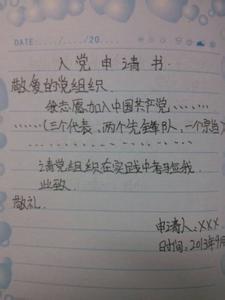 DATE:...../...../20.....
入党申请书
敬爱的党组织.
我志愿加入中国共产党,........
........(三个代表、两个先锋队、一个宗旨)
请党组织在实践中考验我.
此致.
敬礼.
申请人:XXX.
日时间:2013年9月